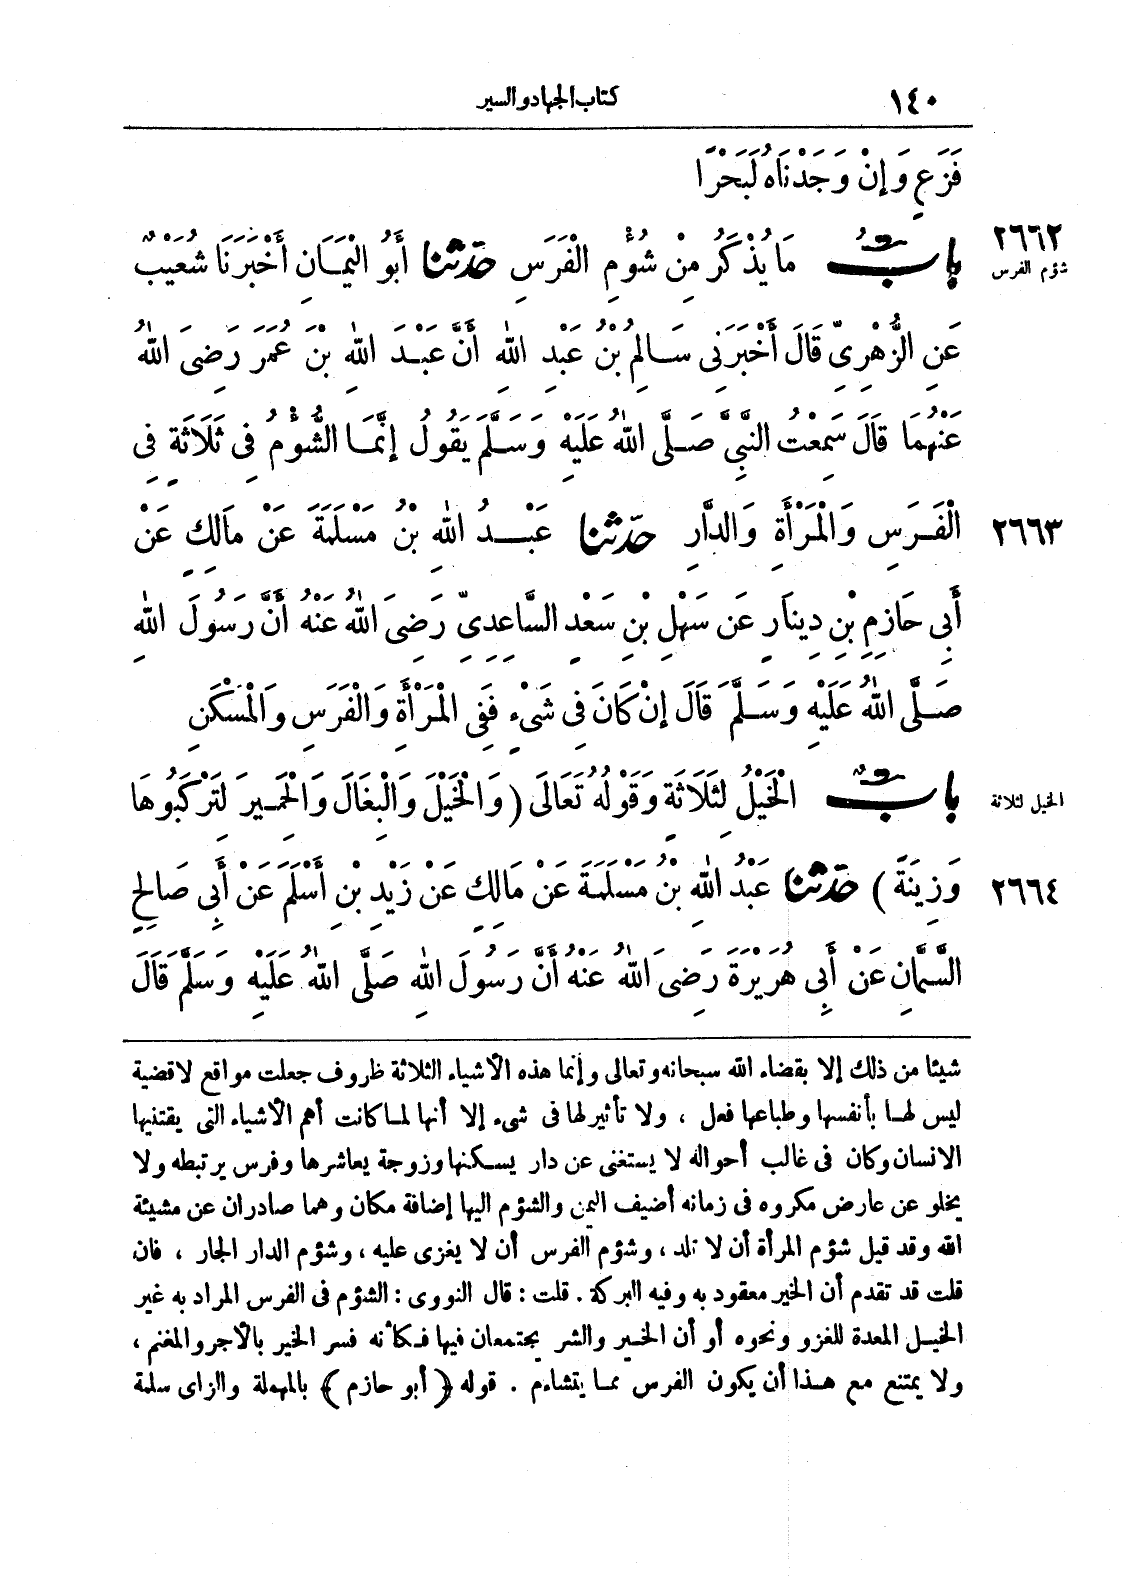 ١٤٠ كتاب الجهاد والسير
فَزَعٍ وَإِنْ وَجَدْنَاهُ لَبَحْرًا
٢٦٦٢
شؤم الفرس
بابُ مَا يُذْكَرُ مِنْ شُؤْمِ الْفَرَسِ حَدَّثنا أَبُو الْيَمَانِ أَخْبَرَنَا شُعَيْبٌ
عَنِ الزُّهْرِىِّ قَالَ أَخْبَرَنِى سَالِمُ بْنُ عَبْدِ اللهِ أَنَّ عَبْدَ اللهِ بْنَ عُمَرَ رَضِىَ اللهُ
عَنْهُمَا قَالَ سَمِعْتُ النَّبِىَّ صَلَّى اللهُ عَلَيْهِ وَسَلَّمَ يَقُولُ إِنَّمَا الشُّؤْمُ فِى ثَلَاثَةٍ فِى
٢٦٦٣
الْفَرَسِ وَالْمَرْأَةِ وَالدَّارِ حَدَّثنا عَبْدُ اللهِ بْنُ مَسْلَمَةَ عَنْ مَالِكٍ عَنْ
أَبِى حَازِمِ بْنِ دِينَارٍ عَنْ سَهْلِ بْنِ سَعْدٍ السَّاعِدِىِّ رَضِىَ اللهُ عَنْهُ أَنَّ رَسُولَ اللهِ
صَلَّى اللهُ عَلَيْهِ وَسَلَّمَ قَالَ إِنْ كَانَ فِى شَىْءٍ فَفِى الْمَرْأَةِ وَالْفَرَسِ وَالْمَسْكَنِ
الخيل لثلاثة
بابٌ الْخَيْلُ لِثَلَاثَةٍ وَقَوْلُهُ تَعَالَى (وَالْخَيْلَ وَالْبِغَالَ وَالْحَمِيرَ لِتَرْكَبُوهَا
٢٦٦٤
وَزِينَةً) حَدَّثنا عَبْدُ اللهِ بْنُ مَسْلَمَةَ عَنْ مَالِكٍ عَنْ زَيْدِ بْنِ أَسْلَمَ عَنْ أَبِى صَالِحٍ
السَّمَّانِ عَنْ أَبِى هُرَيْرَةَ رَضِىَ اللهُ عَنْهُ أَنَّ رَسُولَ اللهِ صَلَّى اللهُ عَلَيْهِ وَسَلَّمَ قَالَ
شيئا من ذلك إلا بقضاء الله سبحانه وتعالى وإنما هذه الأشياء الثلاثة ظروف جعلت مواقع لأقضية
ليس لها بأنفسها وطباعها فعل ، ولا تأثير لها فى شىء إلا أنها لما كانت أهم الأشياء التى يقتنيها
الانسان وكان فى غالب أحواله لا يستغنى عن دار يسكنها وزوجة يعاشرها وفرس يرتبطه ولا
يخلو عن عارض مكروه فى زمانه أضيف اليمن والشؤم اليها إضافة مكان وهما صادران عن مشيئة
الله وقد قيل شؤم المرأة أن لا تلد ، وشؤم الفرس أن لا يغزى عليه ، وشؤم الدار الجار ، فان
قلت قد تقدم أن الخير معقود به وفيه البركة . قلت : قال النووى : الشؤم فى الفرس المراد به غير
الخيل المعدة للغزو ونحوه أو أن الخير والشر يجتمعان فيها فكأنه فسر الخير بالأجر والمغنم ،
ولا يمتنع مع هذا أن يكون الفرس مما يتشاءم . قوله ﴿أبو حازم﴾ بالمهملة والزاى سلمة